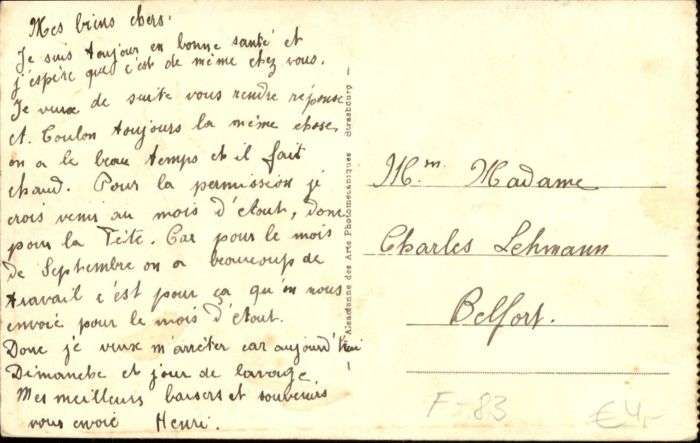 Mes biens chers.
Je suis toujour en bonne santé et
j'espère que c'est de même chez vous.
Je veux de suite vous rendre réponse
A. Toulon toujours la même chose,
on a le beau temps et il fait
chaud. Pour la permission je
crois venir au mois d'étout, donc
pour la Tête. Car pour le mois
de Septembre on a beaucoup de
travail c'est pour ça qu'on nous
envoie pour le mois d'étout.
Donc je veux m'arrêter car aujourd'hui
Dimanche et jour de lavage
Mes meilleurs baisers et souvenirs
vous envoie Henri.
— Alsacienne des Arts Photomécaniques Strasbourg —
M.m. Madame
Charles Lehmann
Belfort.
F-83
€4,-